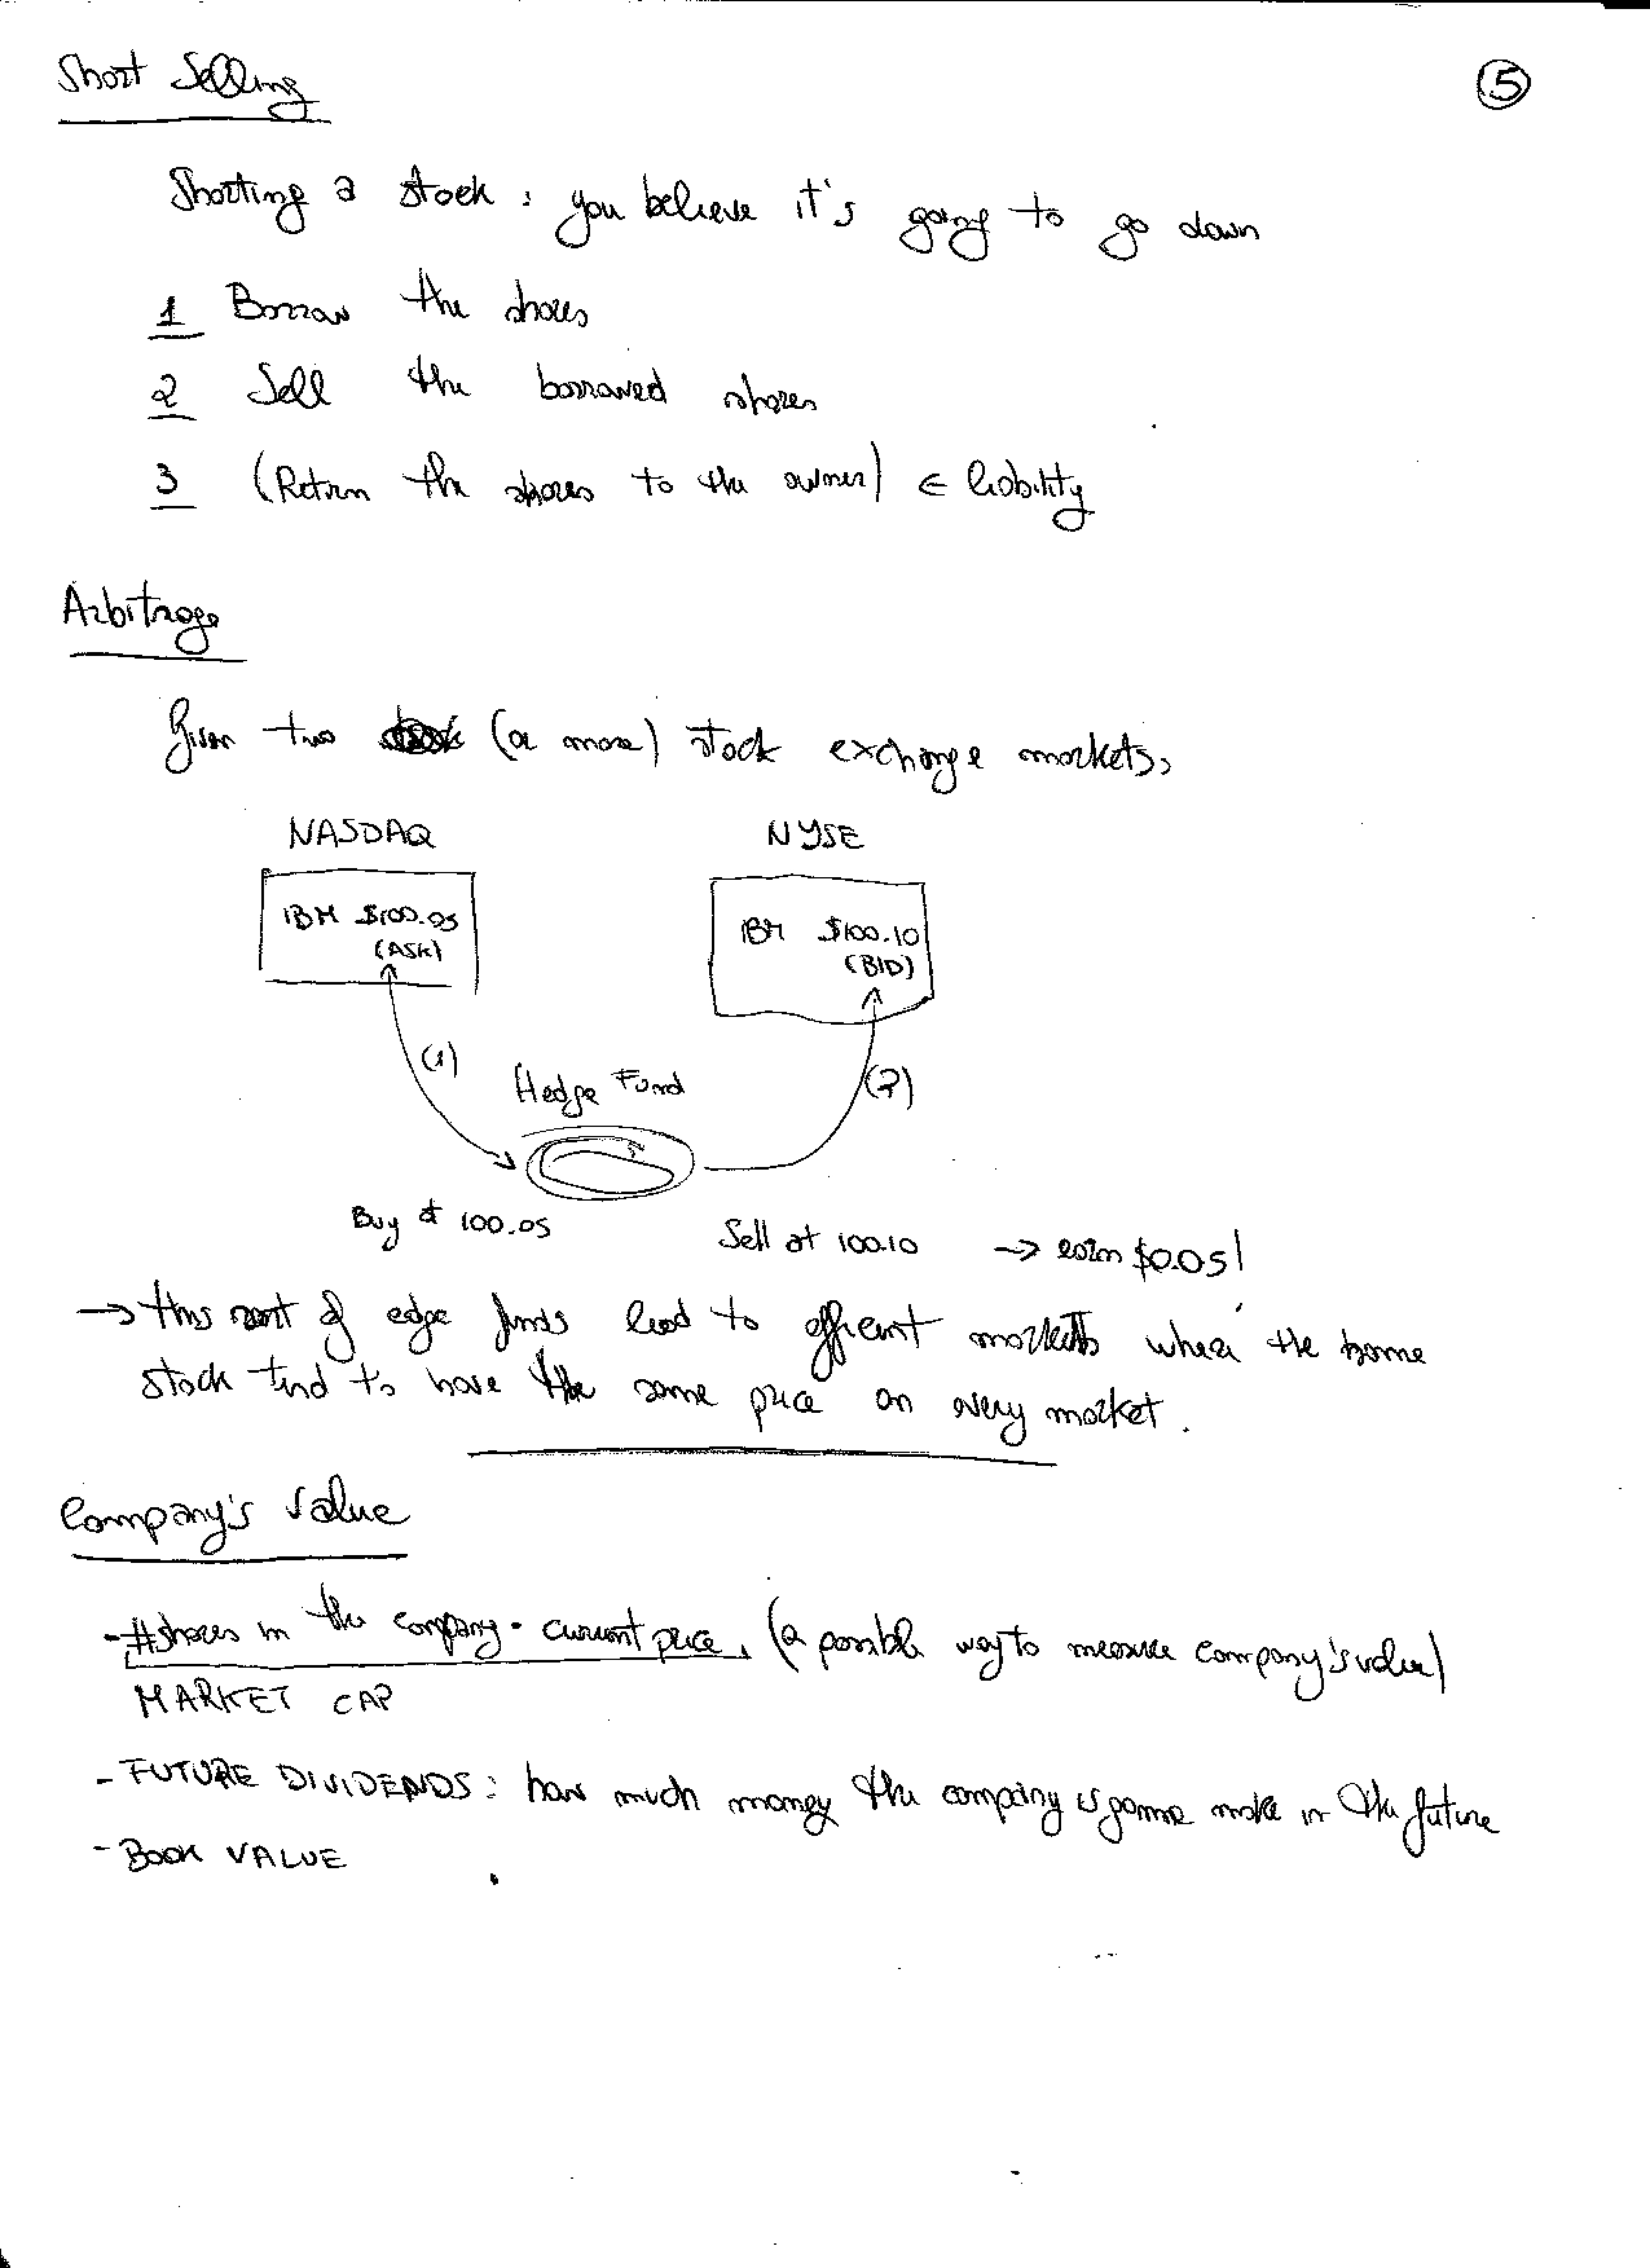 Short Selling
5
Shorting a stock: you believe it's going to go down
1 Borrow the shares
2 Sell the borrowed shares
3 (Return the shares to the owner) ∈ liability
Arbitrage
Given two (or more) stock exchange markets,
NASDAQ NYSE
IBM $100.05 IBM $100.10
(ASK) (BID)
(1) Hedge Fund (2)
Buy at 100.05 Sell at 100.10 → earn $0.05!
→ this sort of edge funds lead to efficient markets where the same
stock tend to have the same price on every market.
Company's Value
- #shares in the company · current price. (a possible way to measure company's value)
MARKET CAP
- FUTURE DIVIDENDS: how much money the company is gonna make in the future
- BOOK VALUE